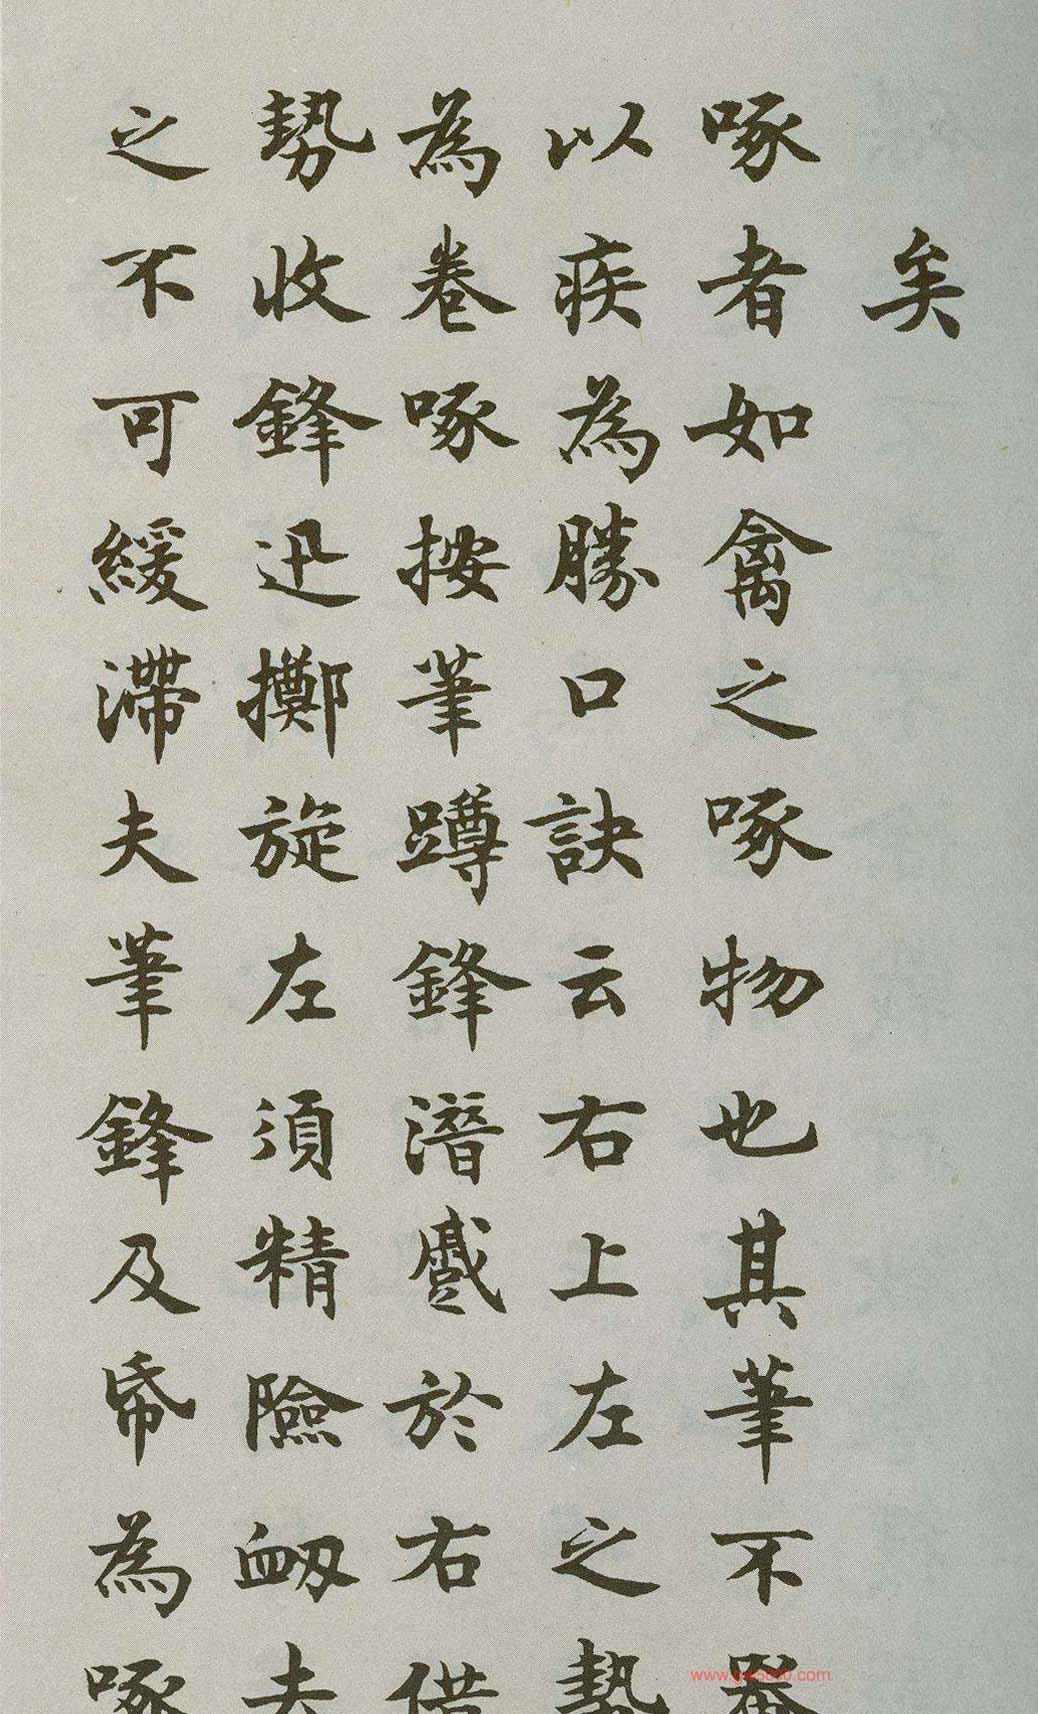 矣
啄者如禽之啄物也其筆不
以疾為勝口訣云右上左之勢
為卷啄按筆蹲鋒潛蹙於右借
勢收鋒迅擲旋左須精險衂去
之不可緩滯夫筆鋒及帋為啄
www.